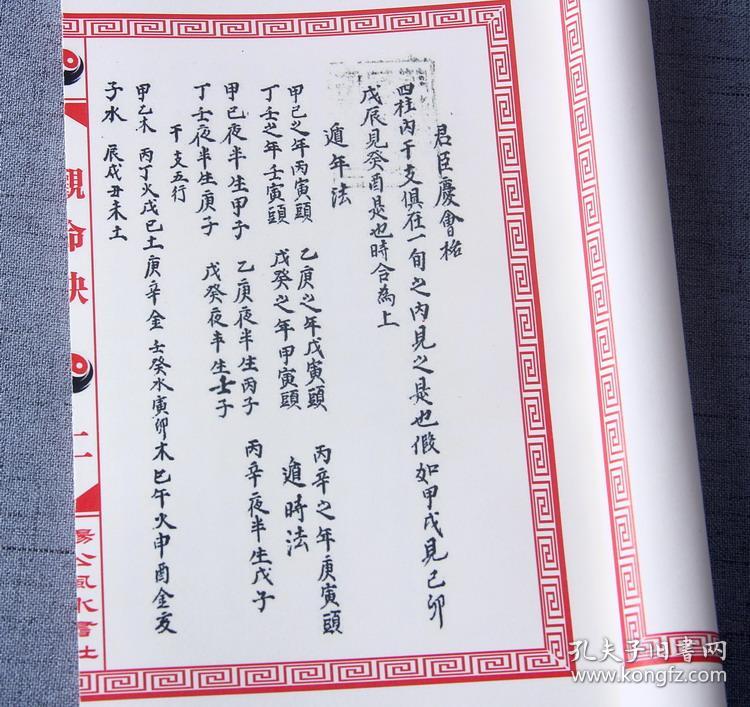 君臣慶會格
四柱內干支俱在一旬之內見之是也假如甲戌見己卯
戊辰見癸酉是也時合為上
遁年法
甲己之年丙寅頭 乙庚之年戊寅頭 丙辛之年庚寅頭
丁壬之年壬寅頭 戊癸之年甲寅頭 遁時法
甲己夜半生甲子 乙庚夜半生丙子 丙辛夜半生戊子
丁壬夜半生庚子 戊癸夜半生壬子
干支五行
甲乙木 丙丁火戊己土庚辛金壬癸水寅卯木巳午火申酉金亥
子水 辰戌丑未土
觀命訣
二
楊公風水書社
孔夫子旧書网
www.kongfz.com